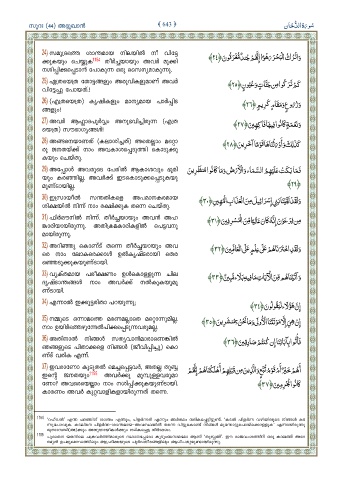 സൂറ (44) അദ്ദുഖാൻ
﴿ 643 ﴾
سُورَةُ الدُّخَان
24) സമുദ്രത്തെ ശാന്തമായ നിലയിൽ നീ വിട്ടേ
ക്കുകയും ചെയ്യുക. തീർച്ചയായും അവർ മുക്കി
നശിപ്പിക്കപ്പെടാൻ പോകുന്ന ഒരു സൈന്യമാകുന്നു.
وَاتْرُكِ الْبَحْرَ رَهْوًا إِنَّهُمْ جُندٌ مُّغْرَقُونَ ﴿٢٤﴾
25) എത്രയെത്ര തോട്ടങ്ങളും അരുവികളുമാണ് അവർ
വിട്ടേച്ചു പോയത്.!
كَمْ تَرَكُوا مِن جَنَّاتٍ وَعُيُونٍ ﴿٢٥﴾
26) (എത്രയെത്ര) കൃഷികളും മാന്യമായ പാർപ്പിട
ങ്ങളും!
وَزُرُوعٍ وَمَقَامٍ كَرِيمٍ ﴿٢٦﴾
27) അവർ ആഹ്ലാദപൂർവ്വം അനുഭവിച്ചിരുന്ന (എത്ര
യെത്ര) സൗഭാഗ്യങ്ങൾ!
وَنَعْمَةٍ كَانُوا فِيهَا فَاكِهِينَ ﴿٢٧﴾
28) അങ്ങനെയാണത് (കലാശിച്ചത്) അതെല്ലാം മറ്റൊ
രു ജനതയ്ക്ക് നാം അവകാശപ്പെടുത്തി കൊടുക്കു
കയും ചെയ്തു.
كَذَٰلِكَ وَأَوْرَثْنَاهَا قَوْمًا آخَرِينَ ﴿٢٨﴾
29) അപ്പോൾ അവരുടെ പേരിൽ ആകാശവും ഭൂമി
യും കരഞ്ഞില്ല. അവർക്ക് ഇടകൊടുക്കപ്പെടുകയു
മുണ്ടായില്ല.
فَمَا بَكَتْ عَلَيْهِمُ السَّمَاءُ وَالْأَرْضُ وَمَا كَانُوا مُنظَرِينَ
﴿٢٩﴾
30) ഇസ്രായീൽ സന്തതികളെ അപമാനകരമായ
ശിക്ഷയിൽ നിന്ന് നാം രക്ഷിക്കുക തന്നെ ചെയ്തു.
وَلَقَدْ نَجَّيْنَا بَنِي إِسْرَائِيلَ مِنَ الْعَذَابِ الْمُهِينِ ﴿٣٠﴾
31) ഫിർഔനിൽ നിന്ന്. തീർച്ചയായും അവൻ അഹ
ങ്കാരിയായിരുന്നു. അതിക്രമകാരികളിൽ പെട്ടവനു
മായിരുന്നു.
مِن فِرْعَوْنَ إِنَّهُ كَانَ عَالِيًا مِّنَ الْمُسْرِفِينَ ﴿٣١﴾
32) അറിഞ്ഞു കൊണ്ട് തന്നെ തീർച്ചയായും അവ
രെ നാം ലോകരെക്കാൾ ഉൽകൃഷ്ടരായി തെര
ഞ്ഞെടുക്കുകയുണ്ടായി.
وَلَقَدِ اخْتَرْنَاهُمْ عَلَىٰ عِلْمٍ عَلَى الْعَالَمِينَ ﴿٣٢﴾
33) വ്യക്തമായ പരീക്ഷണം ഉൾക്കൊള്ളുന്ന ചില
ദൃഷ്ടാന്തങ്ങൾ നാം അവർക്ക് നൽകുകയുമു
ണ്ടായി.
وَآتَيْنَاهُم مِّنَ الْآيَاتِ مَا فِيهِ بَلَاءٌ مُّبِينٌ ﴿٣٣﴾
34) എന്നാൽ ഇക്കൂട്ടരിതാ പറയുന്നു;
إِنَّ هَٰؤُلَاءِ لَيَقُولُونَ ﴿٣٤﴾
35) നമ്മുടെ ഒന്നാമത്തെ മരണമല്ലാതെ മറ്റൊന്നുമില്ല.
നാം ഉയിർത്തെഴുന്നേൽപിക്കപ്പെടുന്നവരുമല്ല.
إِنْ هِيَ إِلَّا مَوْتَتُنَا الْأُولَىٰ وَمَا نَحْنُ بِمُنشَرِينَ ﴿٣٥﴾
36) അതിനാൽ നിങ്ങൾ സത്യവാൻമാരാണെങ്കിൽ
ഞങ്ങളുടെ പിതാക്കളെ നിങ്ങൾ (ജീവിപ്പിച്ചു) കൊ
ണ്ട് വരിക എന്ന്.
فَأْتُوا بِآبَائِنَا إِن كُنتُمْ صَادِقِينَ ﴿٣٦﴾
37) ഇവരാണോ കൂടുതൽ മെച്ചപ്പെട്ടവർ, അതല്ല തുബ്ബ
ഇന്റെ ജനതയും അവർക്കു മുമ്പുള്ളവരുമാ
ണോ? അവരെയെല്ലാം നാം നശിപ്പിക്കുകയുണ്ടായി.
കാരണം അവർ കുറ്റവാളികളായിരുന്നത് തന്നെ.
أَهُمْ خَيْرٌ أَمْ قَوْمُ تُبَّعٍ وَالَّذِينَ مِن قَبْلِهِمْ أَهْلَكْنَاهُمْ إِنَّهُمْ
كَانُوا مُجْرِمِينَ ﴿٣٧﴾